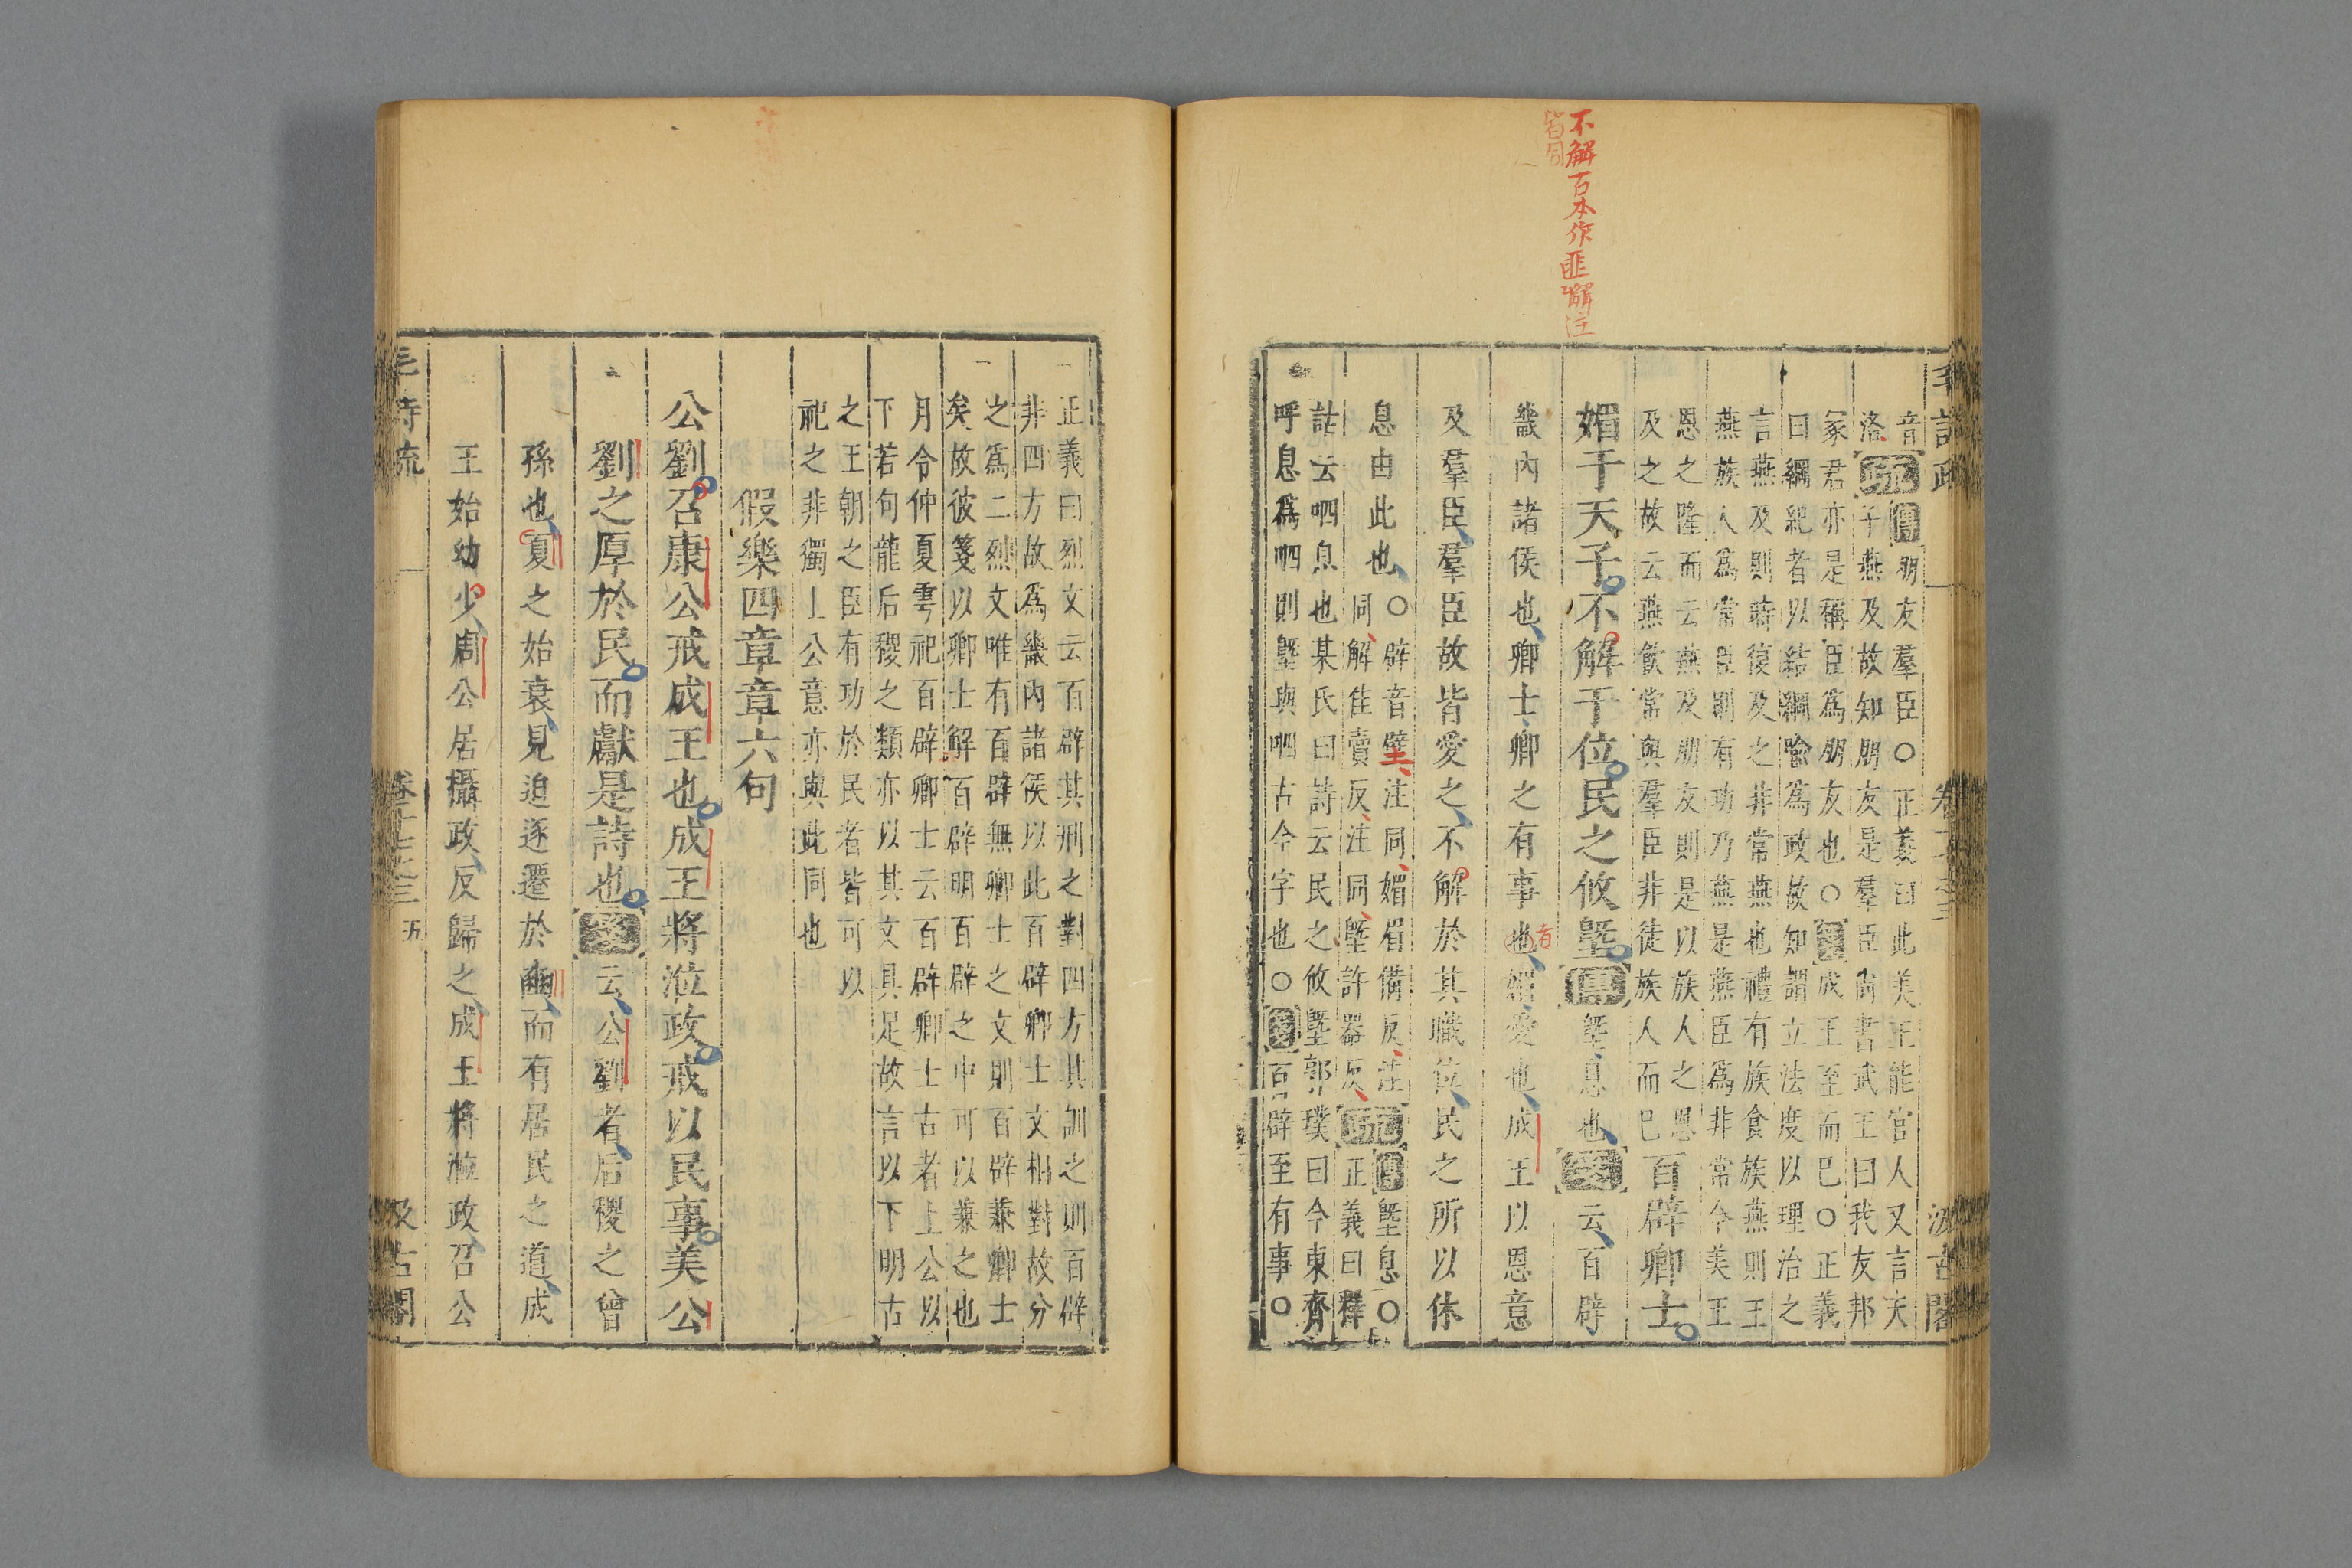 不解古本作匪懈注
皆同
音
洛疏傳朋友羣臣○正義曰此美王能官人又言天
子燕及故知朋友是羣臣尚書武王曰我友邦
冢君亦是稱臣爲朋友也○箋成王至而巳○正義
曰綱紀者以結綱喻爲政故知謂立法度以理治之
言燕及則時復及之非常燕也禮有族食族燕則王
燕族人爲常臣則有功乃燕是燕臣爲非常今美王
恩之隆而云燕及朋友則是以族人之恩
及之故云燕飲常與羣臣非徒族人而巳百辟卿士
媚于天子不解于位民之攸墍傳墍息也箋云百辟
畿內諸侯也卿士卿之有事也媚愛也成王以恩意
者
及羣臣羣臣故皆愛之不解於其職位民之所以休
息由此也○辟音璧注同媚眉備反注
同解佳賣反注同墍許器反疏傳墍息○正義曰釋
詁云呬息也某氏曰詩云民之攸墍郭璞曰今東齊
呼息爲呬則墍與呬古今字也○箋百辟至有事○
毛詩疏
卷十七之三
汲古閣
正義曰烈文云百辟其刑之對四方其訓之則百辟
非四方故爲畿內諸侯以此百辟卿士文相對故分
之爲二烈文唯有百辟無卿士之文則百辟兼卿士
矣故彼箋以卿士解百辟明百辟之中可以兼之也
月令仲夏雩祀百辟卿士云百辟卿士古者上公以
下若句龍后稷之類亦以其文具足故言以下明古
之王朝之臣有功於民者皆可以
祀之非獨上公意亦與此同也
假樂四章章六句
公劉召康公戒成王也成王將涖政戒以民事美公
劉之厚於民而獻是詩也箋云公劉者后稷之曾
孫也夏之始衰見迫逐遷於豳而有居民之道成
王始幼少周公居攝政反歸之成王將涖政召公
毛詩疏
卷十七之三
五
汲古閣